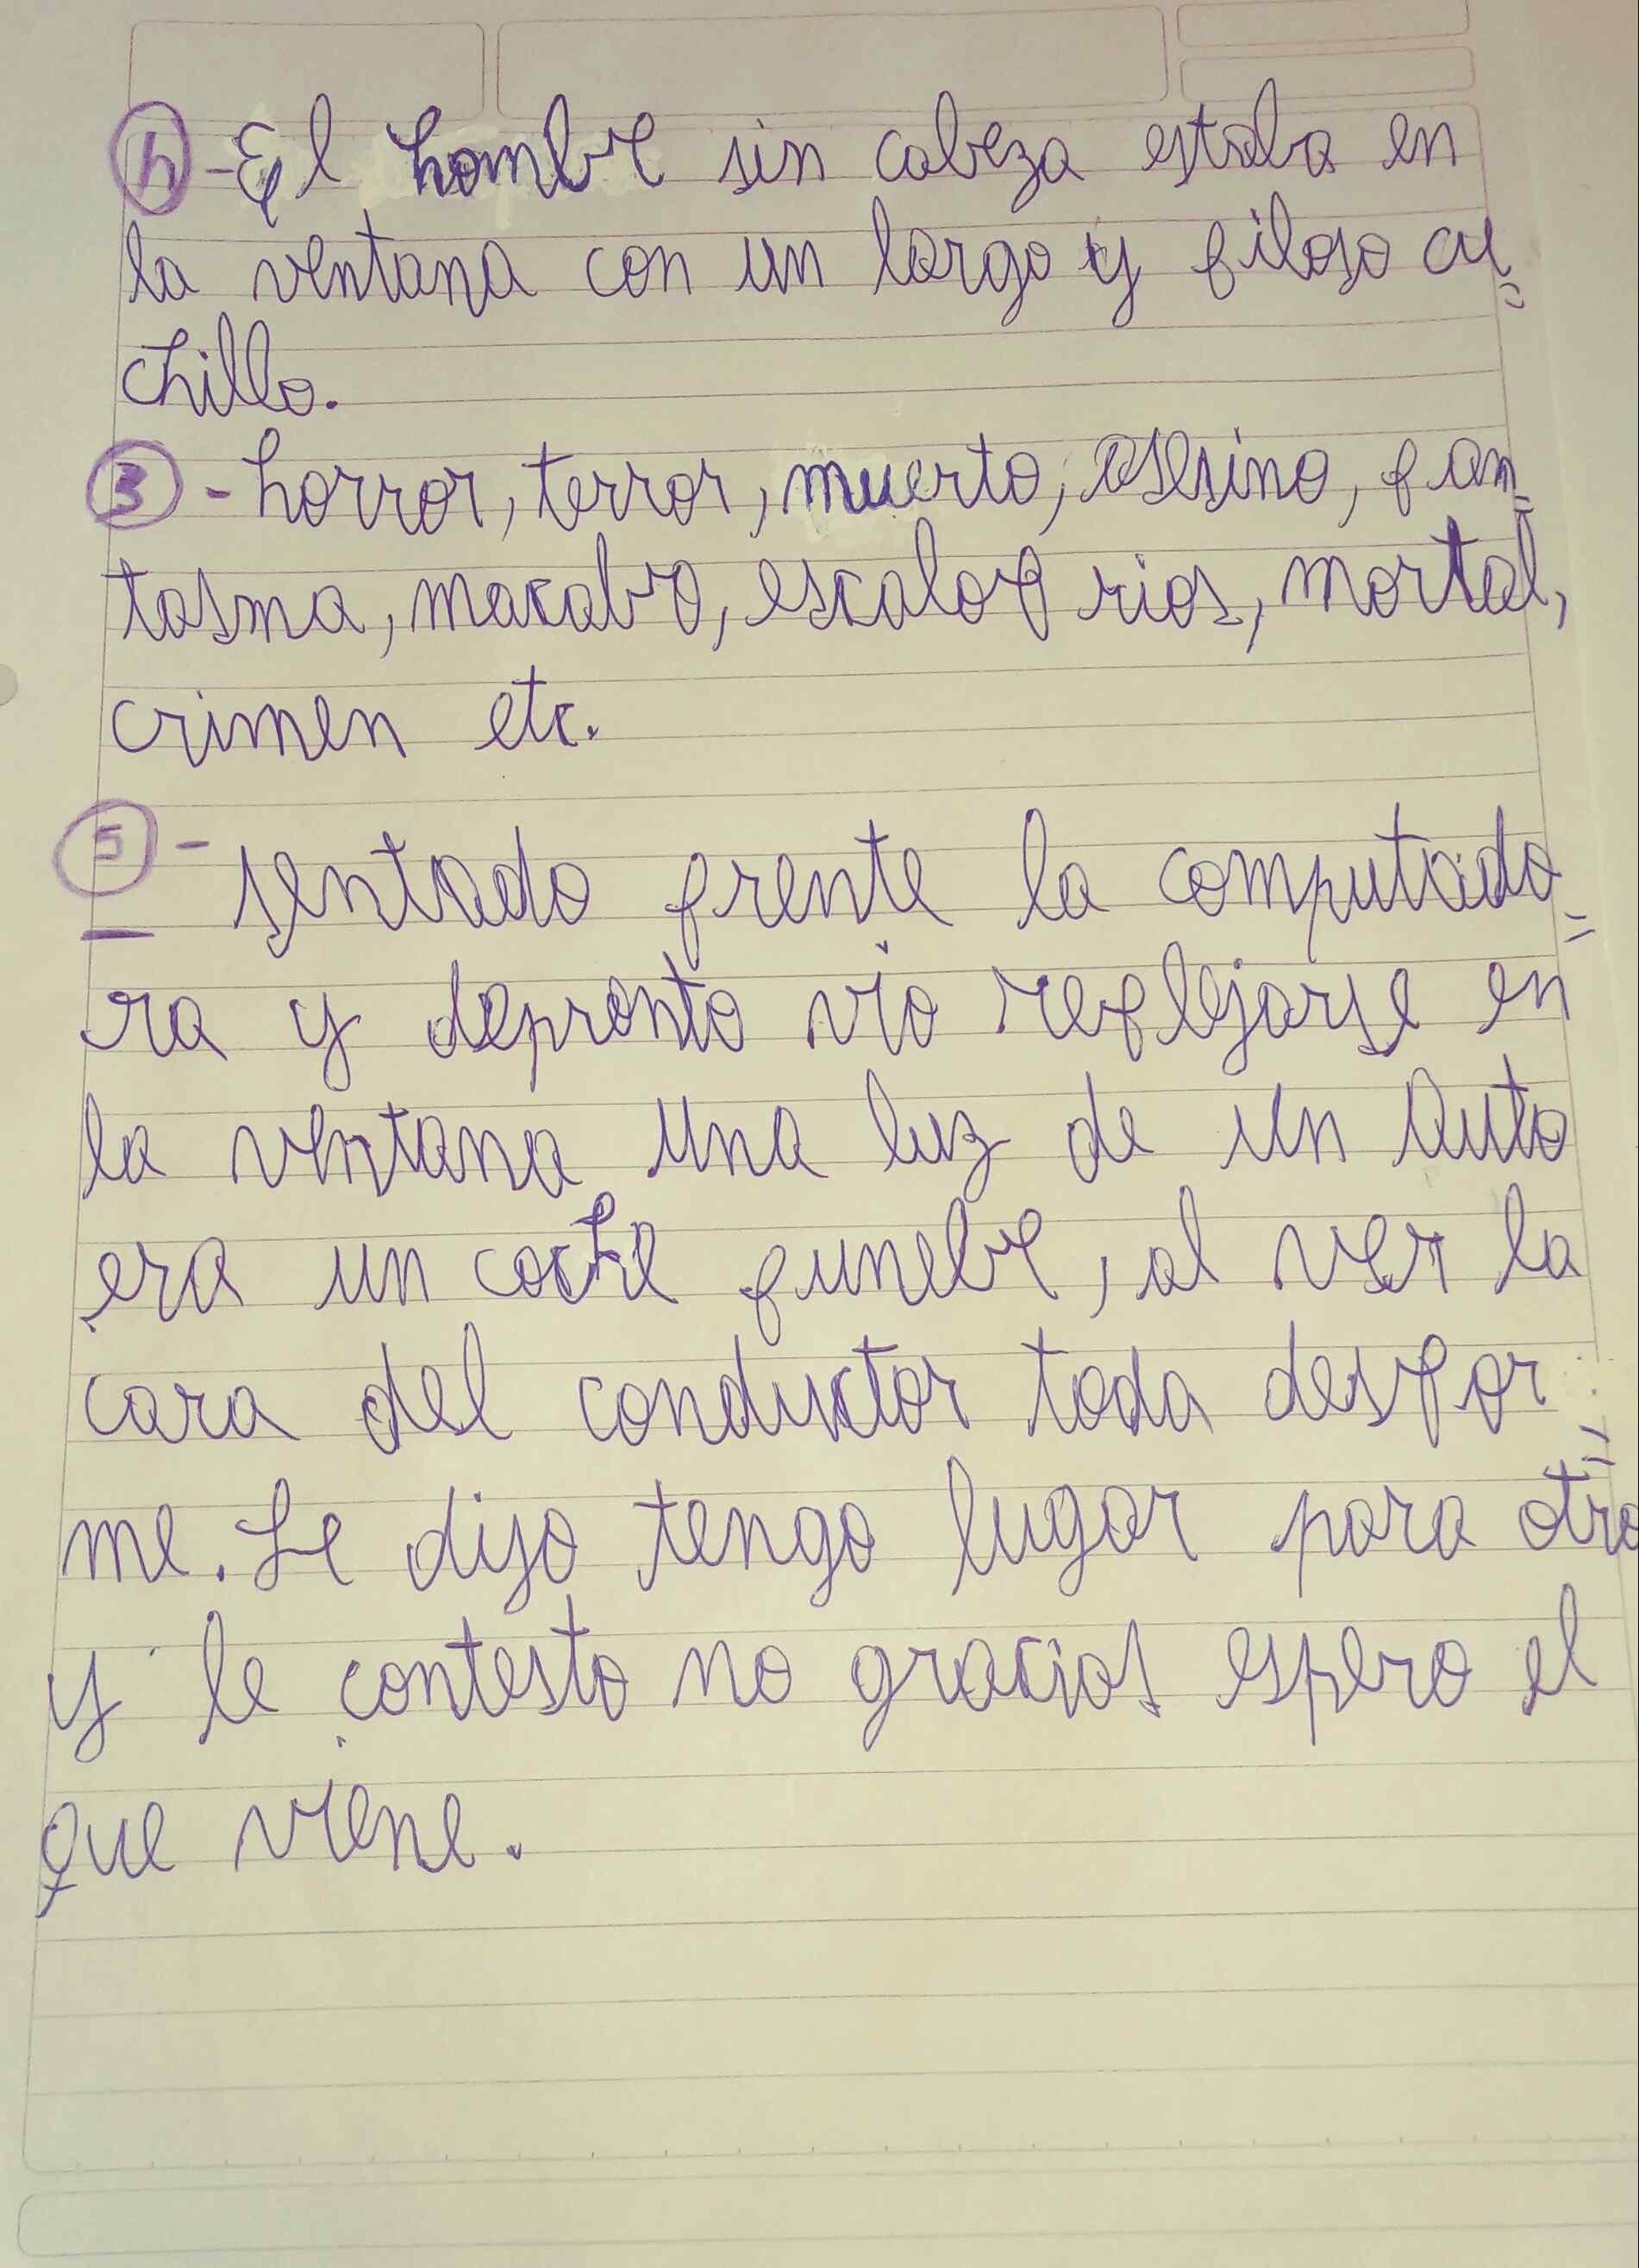 h - El hombre sin cabeza estaba en
la ventana con un largo y filoso cu=
chillo.
3 - horror, terror, muerto, asesino, fan=
tasma, macabro, escalofrios, mortal,
crimen etc.
5 - sentado frente la computado=
ra y depronto vio reflejarse en
la ventana una luz de un auto
era un coche funebre, al ver la
cara del conductor toda desfor=
me. Le dijo tengo lugar para otro
y le contesto no gracias espero el
que viene.